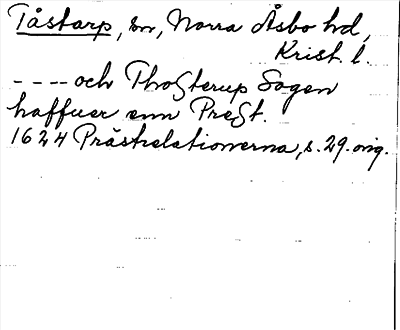 Tåstarp, sn, Norra Åsbo hd,
Krist. l.
---- och Thoßterup Sogen
haffuer enn Preßt.
1624 Prästrelationerna, s. 29. orig.